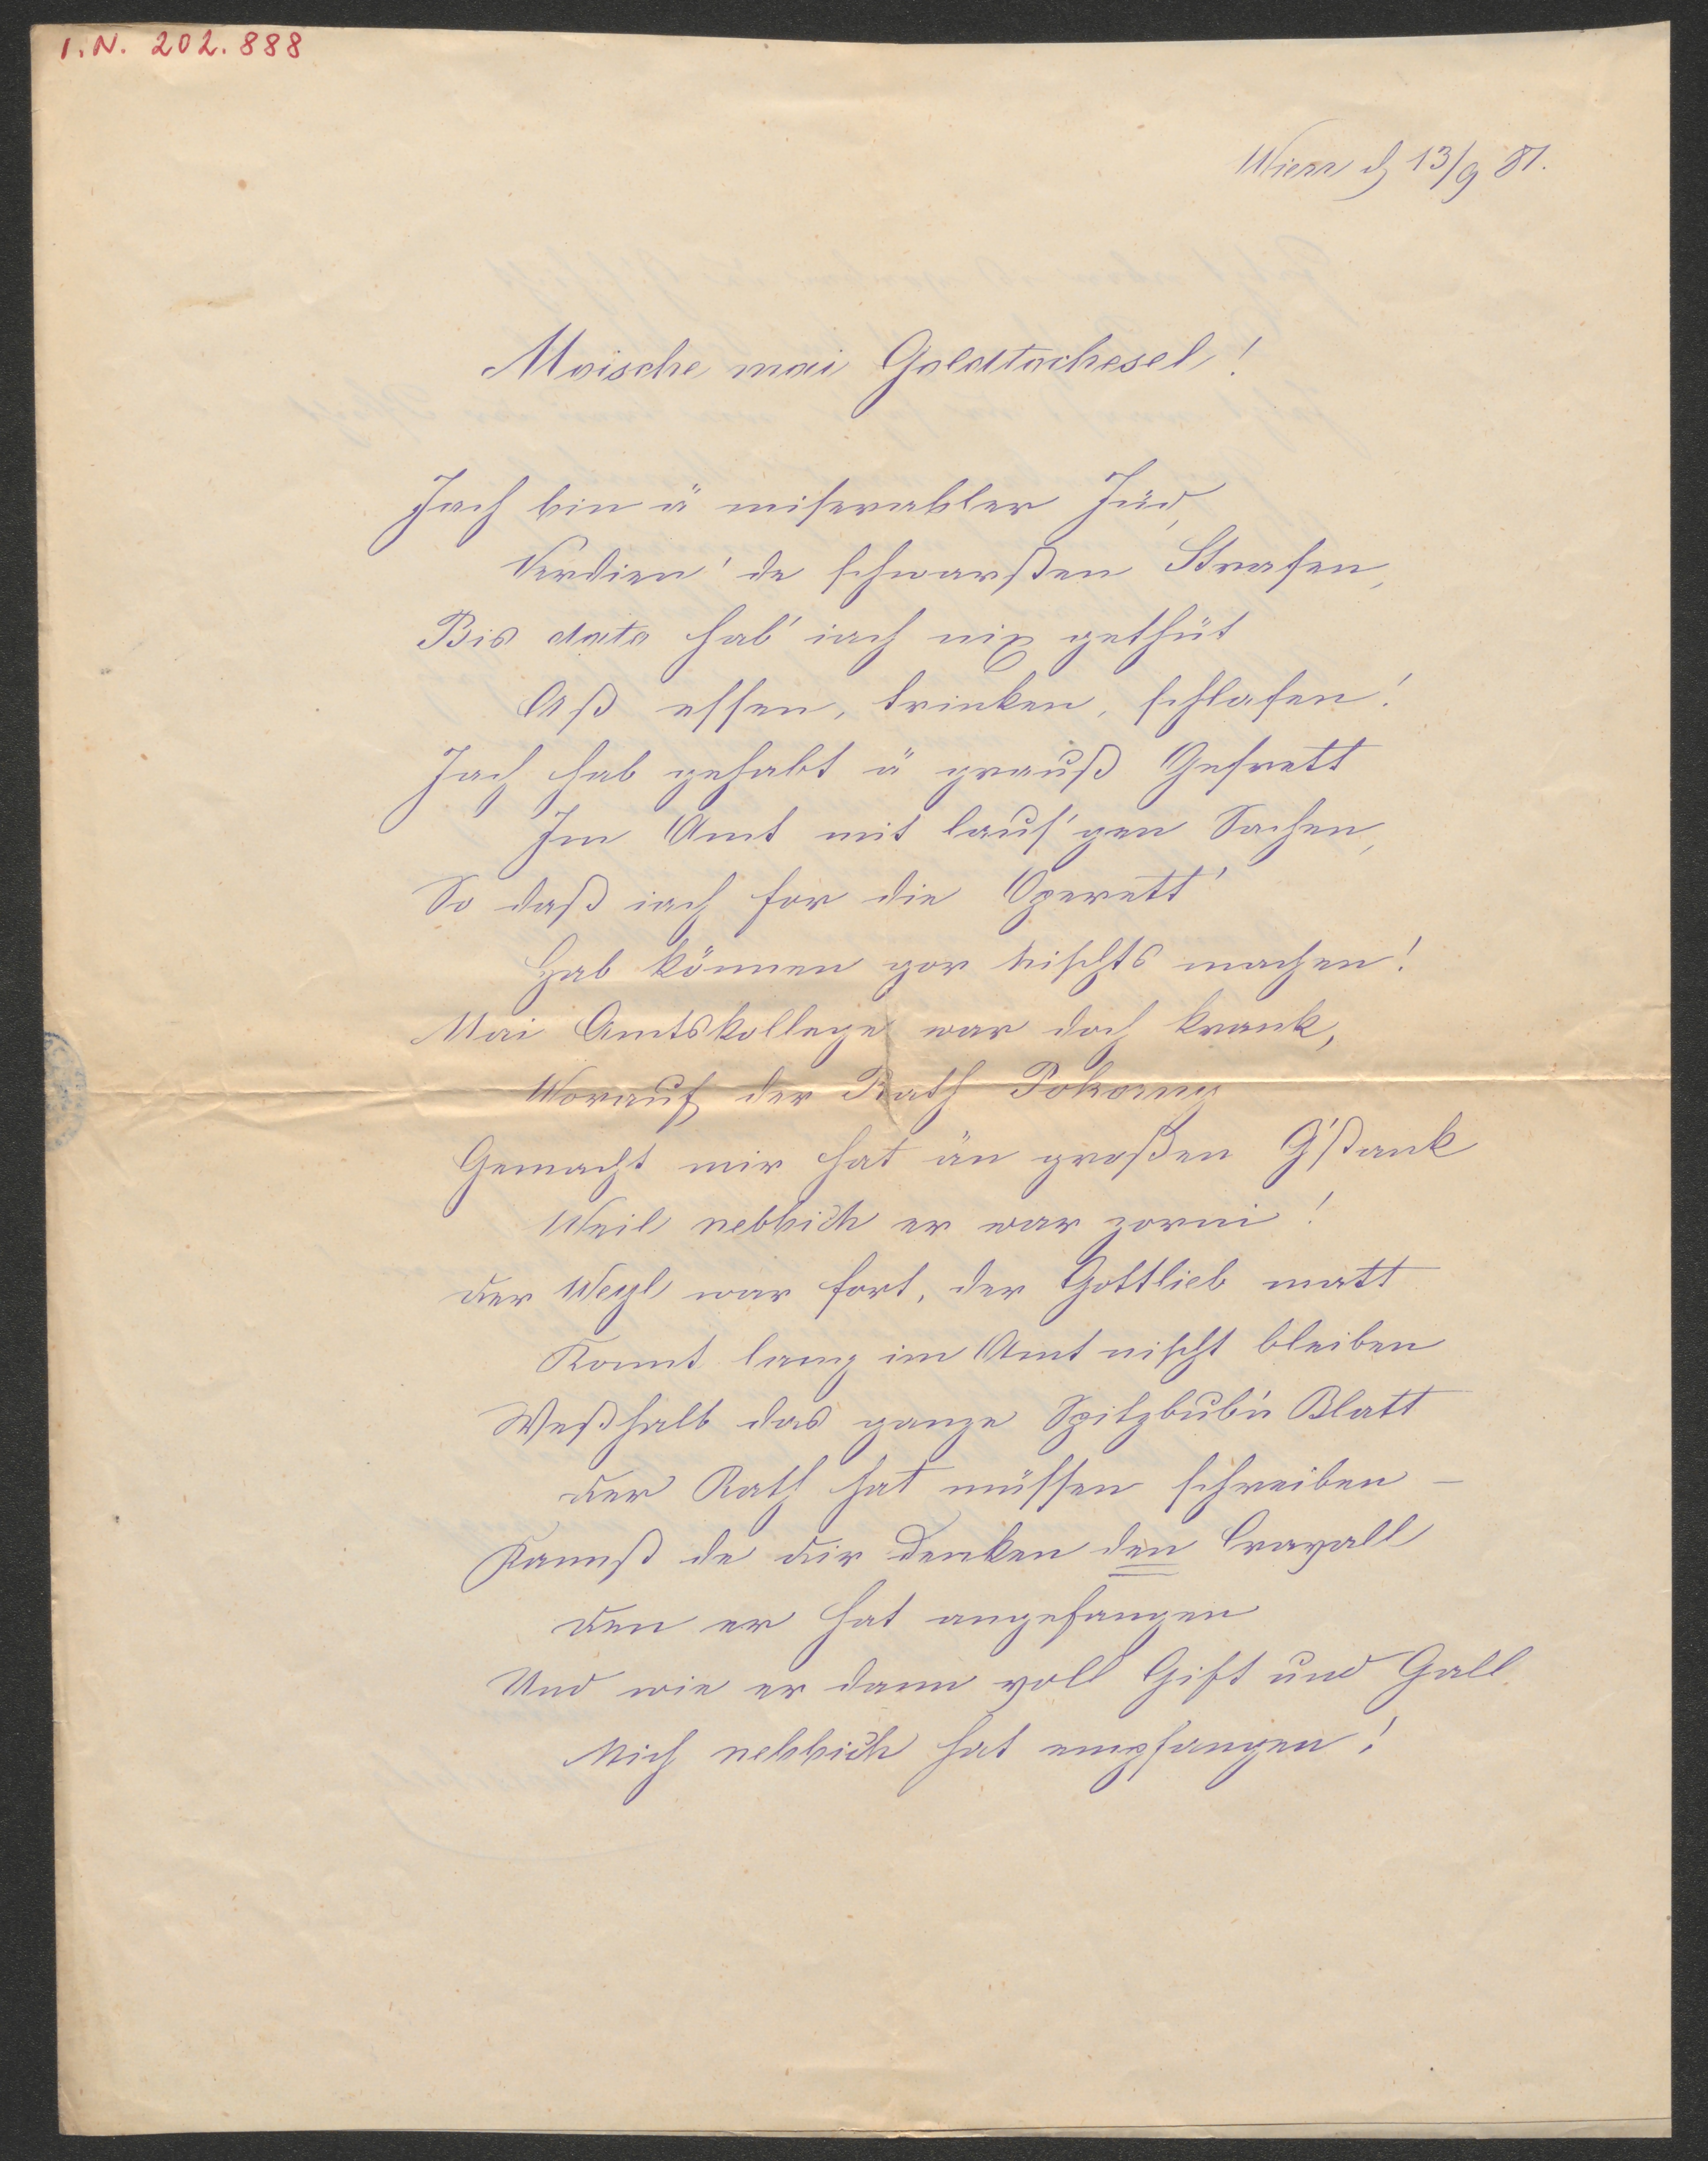 I.N. 202.888
Wien d 13/9 81.
Moische mai Goldtochesel!
Jach bin ä miserabler Jüd,
Verdien' de schwarßten Strafen,
Bis dato hab' iach nix gethüt
Aß essen, trinken, schlafen!
Jach hab gehabt ä grauß Gefrett
Im Amt mit laus'gen Sachen,
So daß iach for die Operett'
Hab können gor nischts machen!
Mai Amtskollege war doch krank,
Worauf der Rath Pokorny
Gemacht mir hat än großen G'stank
Weil nebbich er war zorni!
Der Weyl war fort, der Gottlieb matt
Konnt lang im Amt nischt bleiben
Weßhalb das ganze Spitzbub'n Blatt
Der Rath hat müssen schreiben –
Kannst de dir denken den Cravall
Den er hat angefangen
Und wie er dann voll Gift und Gall
Mich nebbich hat empfangen!